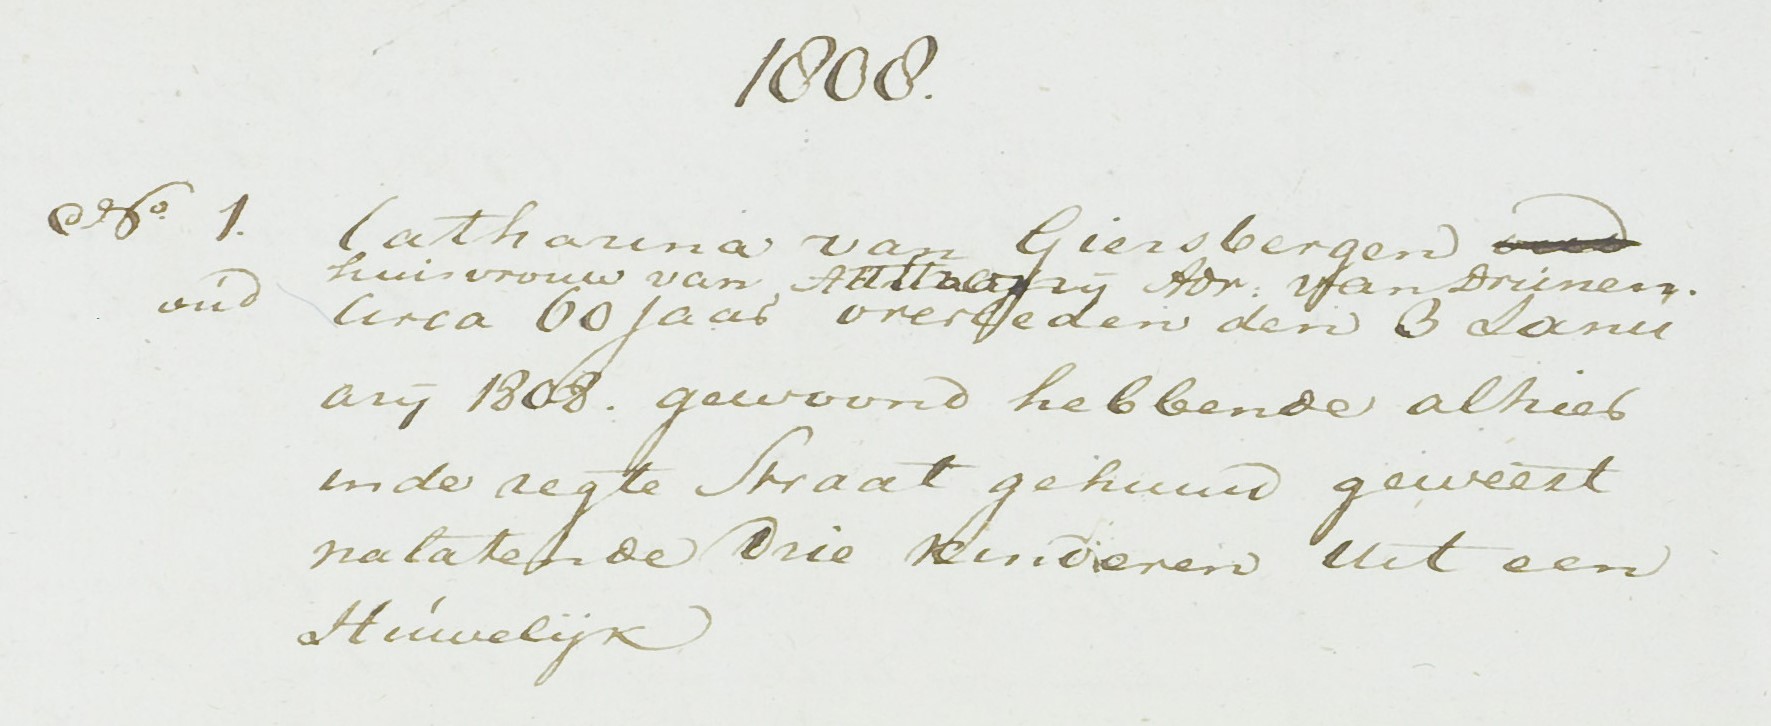 1808.
No. 1. Catharina van Giersbergen
huisvrouw van Adr: van Drünen.
oud Circa 60 Jaar overleeden den 3 Janu
arij 1808. gewoond hebbende alhier
inde regte Straat gehuwd geweest
nalatende Drie kinderen Uit een
Huwelijk